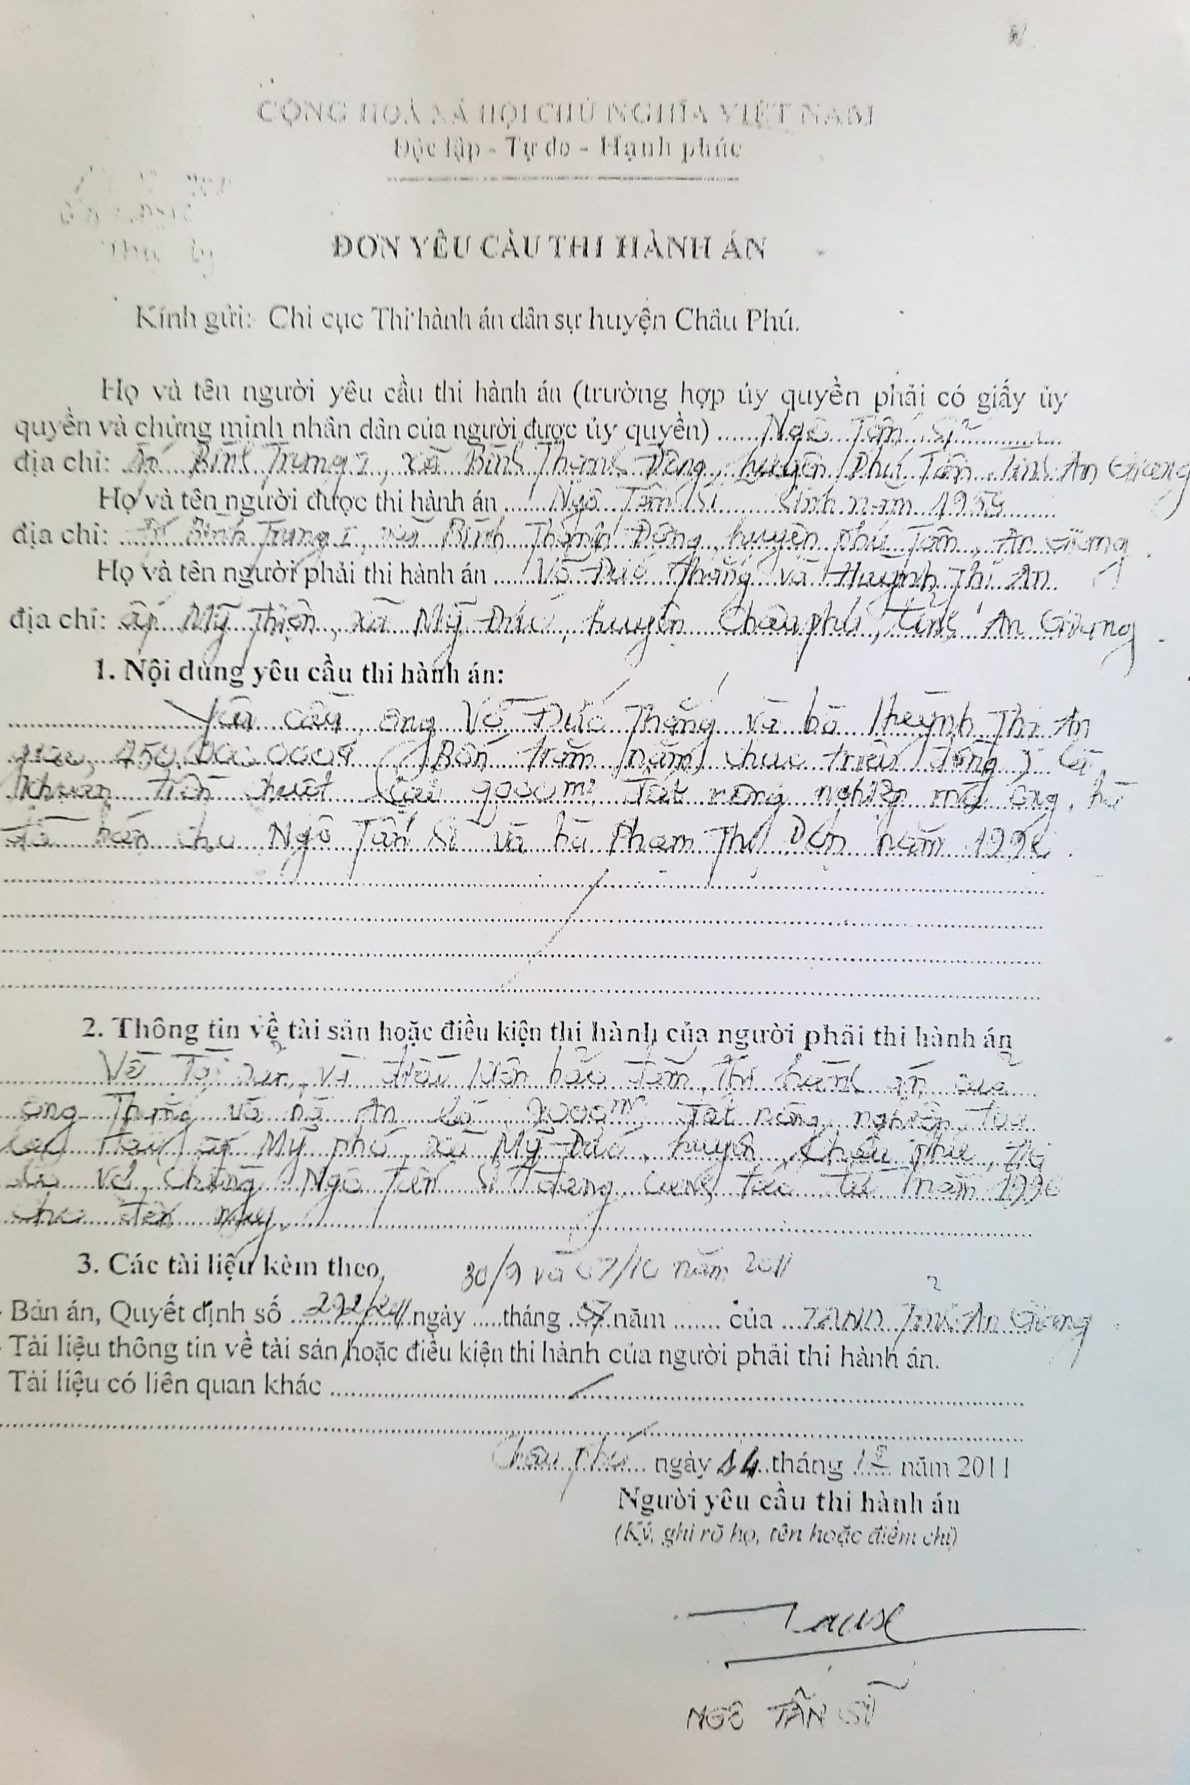 CỘNG HOÀ XÃ HỘI CHỦ NGHĨA VIỆT NAM
Độc lập - Tự do - Hạnh phúc
ĐƠN YÊU CẦU THI HÀNH ÁN
Kính gửi: Chi cục Thi hành án dân sự huyện Châu Phú.
Họ và tên người yêu cầu thi hành án (trường hợp ủy quyền phải có giấy ủy
quyền và chứng minh nhân dân của người được ủy quyền) Ngô Tấn Sĩ
địa chỉ: ấp Bình Trung 1, xã Bình Thạnh Đông, huyện Phú Tân, Tỉnh An Giang
Họ và tên người được thi hành án Ngô Tấn Sĩ Sinh năm 1954
địa chỉ: ấp Bình Trung 1, xã Bình Thạnh Đông, huyện Phú Tân, An Giang
Họ và tên người phải thi hành án Võ Đức Thắng và Huỳnh Thị An
địa chỉ: ấp Mỹ Thiện, xã Mỹ Đức, huyện Châu phú, tỉnh An Giang
1. Nội dung yêu cầu thi hành án:
Yêu cầu ông Võ Đức Thắng và bà Huỳnh Thị An
450.000.000đ (Bốn trăm năm chục triệu đồng) là
khoản tiền đất nông nghiệp mà ông, bà
đã bán cho Ngô Tấn Sĩ và bà Phạm Thị năm
2. Thông tin về tài sản hoặc điều kiện thi hành của người phải thi hành án
Về Tài sản và điều kiện bảo đảm thi hành án của
ông Thắng và bà An là đất nông nghiệp tọa
lạc tại ấp Mỹ phó, xã Mỹ Đức, huyện Châu phú,
vợ chồng Ngô Tấn Sĩ đang canh tác từ năm
cho đến nay.
3. Các tài liệu kèm theo 30/9 và 07/10 năm 2011
- Bản án, Quyết định số ngày tháng năm của TAND Tỉnh An Giang
- Tài liệu thông tin về tài sản hoặc điều kiện thi hành của người phải thi hành án.
Tài liệu có liên quan khác
Châu Phú ngày 14 tháng 12 năm 2011
Người yêu cầu thi hành án
(Ký, ghi rõ họ, tên hoặc điểm chỉ)
NGÔ TẤN SĨ